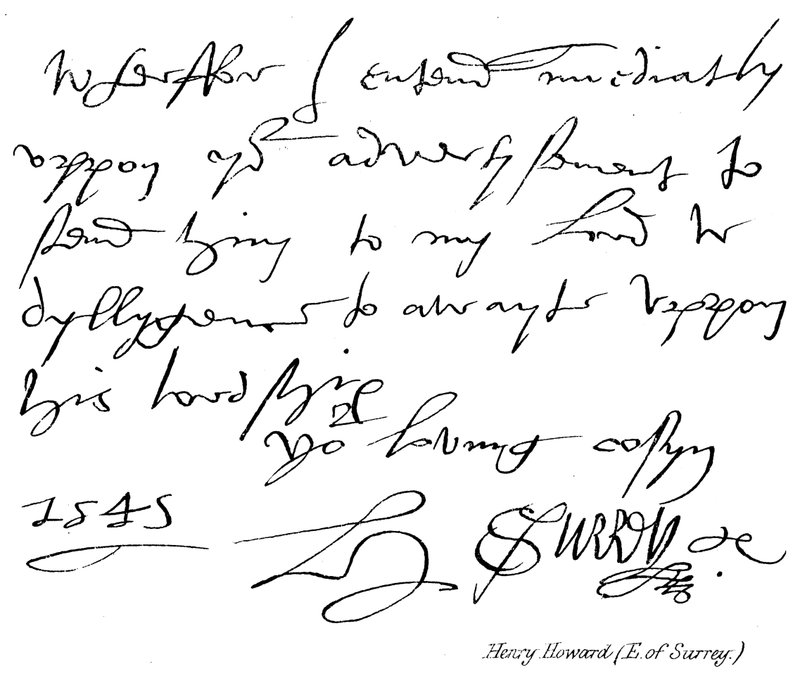 Wherfor I entend imediatly
vppon yor advertyssement to
send hym to my lord wt
dyllygence to awayte vppon
his lordship
yor loving cosyn
1545
H SURREY
Henry Howard (E. of Surrey.)